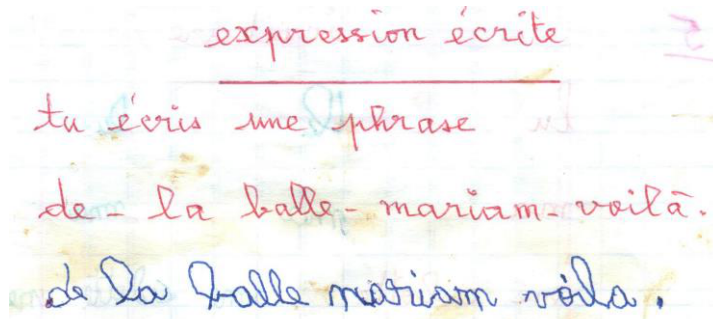 expression écrite
tu écris une phrase
de - la balle - mariam - voilà.
de la balle mariam vòila.